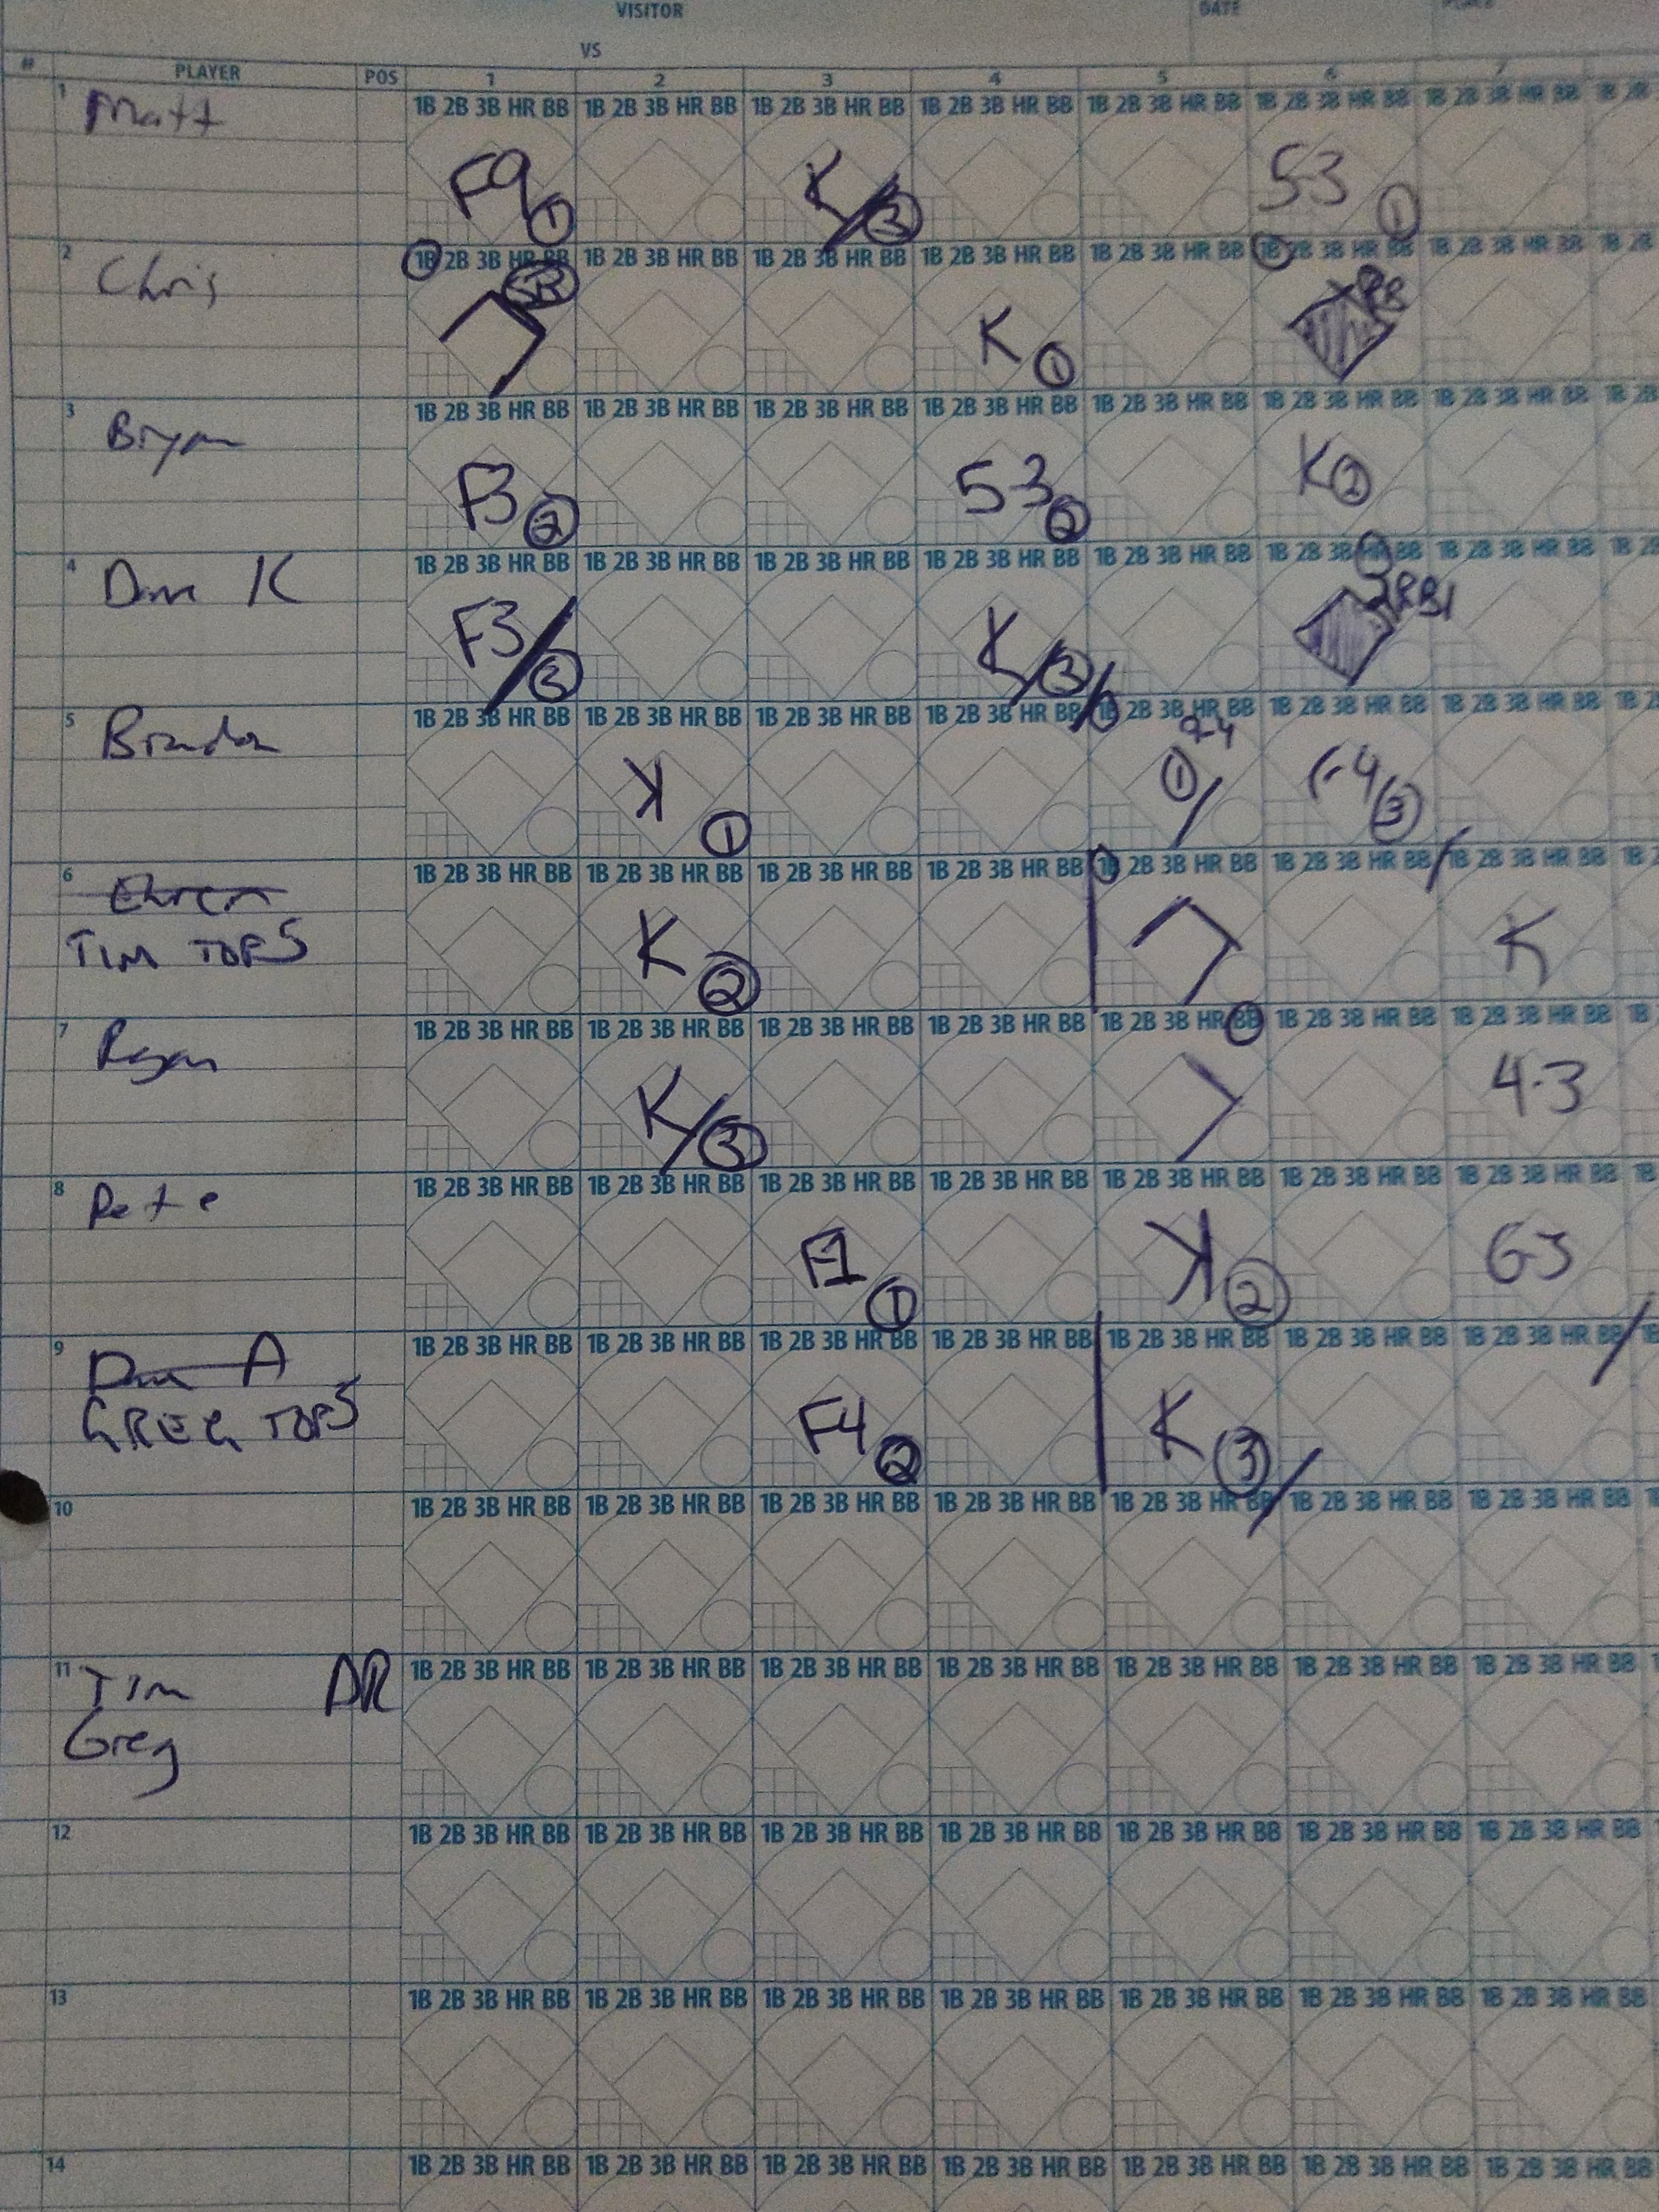 VISITOR DATE
VS
# PLAYER POS 1 2 3 4 5 6 7
1B 2B 3B HR BB 1B 2B 3B HR BB 1B 2B 3B HR BB 1B 2B 3B HR BB 1B 2B 3B HR BB 1B 2B 3B HR BB 1B 2B 3B HR BB 1B 2B
1 Matt F9 1 K 3 5-3 1
1B 2B 3B HR BB 1B 2B 3B HR BB 1B 2B 3B HR BB 1B 2B 3B HR BB 1B 2B 3B HR BB 1B 2B 3B HR BB 1B 2B 3B HR BB 1B 2B
2 Chris SB K 1
1B 2B 3B HR BB 1B 2B 3B HR BB 1B 2B 3B HR BB 1B 2B 3B HR BB 1B 2B 3B HR BB 1B 2B 3B HR BB 1B 2B 3B HR BB 1B 2B
3 Bryan F3 2 5-3 2 K 2
1B 2B 3B HR BB 1B 2B 3B HR BB 1B 2B 3B HR BB 1B 2B 3B HR BB 1B 2B 3B HR BB 1B 2B 3B HR BB 1B 2B 3B HR BB 1B 2B
4 Dave K F3 3 K 3 2RBI
1B 2B 3B HR BB 1B 2B 3B HR BB 1B 2B 3B HR BB 1B 2B 3B HR BB 1B 2B 3B HR BB 1B 2B 3B HR BB 1B 2B 3B HR BB 1B 2
5 Brandon K 1 2-4 1 3
1B 2B 3B HR BB 1B 2B 3B HR BB 1B 2B 3B HR BB 1B 2B 3B HR BB 1B 2B 3B HR BB 1B 2B 3B HR BB 1B 2B 3B HR BB 1B
6 Ehren
TIM TOP 5 K 2 K
1B 2B 3B HR BB 1B 2B 3B HR BB 1B 2B 3B HR BB 1B 2B 3B HR BB 1B 2B 3B HR BB 1B 2B 3B HR BB 1B 2B 3B HR BB 1B
7 Ryan K 3 4-3
1B 2B 3B HR BB 1B 2B 3B HR BB 1B 2B 3B HR BB 1B 2B 3B HR BB 1B 2B 3B HR BB 1B 2B 3B HR BB 1B 2B 3B HR BB 1B
8 Pete F1 1 K 2 63
1B 2B 3B HR BB 1B 2B 3B HR BB 1B 2B 3B HR BB 1B 2B 3B HR BB 1B 2B 3B HR BB 1B 2B 3B HR BB 1B 2B 3B HR BB
9 Dave A
GREG TOP 5 F4 2 K 3
1B 2B 3B HR BB 1B 2B 3B HR BB 1B 2B 3B HR BB 1B 2B 3B HR BB 1B 2B 3B HR BB 1B 2B 3B HR BB 1B 2B 3B HR BB
10
1B 2B 3B HR BB 1B 2B 3B HR BB 1B 2B 3B HR BB 1B 2B 3B HR BB 1B 2B 3B HR BB 1B 2B 3B HR BB 1B 2B 3B HR BB
11 Tim
Greg
1B 2B 3B HR BB 1B 2B 3B HR BB 1B 2B 3B HR BB 1B 2B 3B HR BB 1B 2B 3B HR BB 1B 2B 3B HR BB 1B 2B 3B HR BB
12
1B 2B 3B HR BB 1B 2B 3B HR BB 1B 2B 3B HR BB 1B 2B 3B HR BB 1B 2B 3B HR BB 1B 2B 3B HR BB 1B 2B 3B HR BB
13
1B 2B 3B HR BB 1B 2B 3B HR BB 1B 2B 3B HR BB 1B 2B 3B HR BB 1B 2B 3B HR BB 1B 2B 3B HR BB 1B 2B 3B HR BB
14